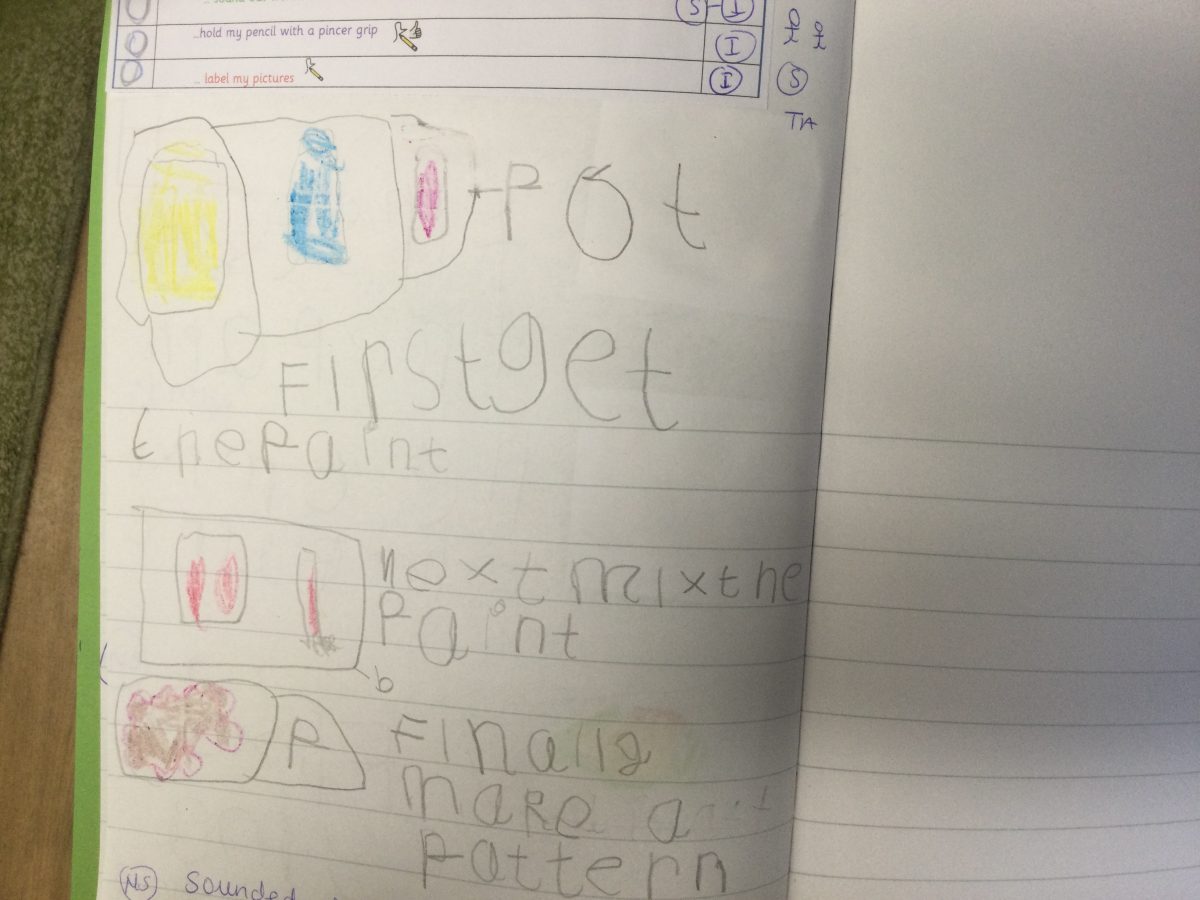 S - I
..hold my pencil with a pincer grip
I
... label my pictures
I
S
TA
Pot
First get
the Paint
next mix the
Paint
b
P
Finally
make a
Pattern
NS Sounded